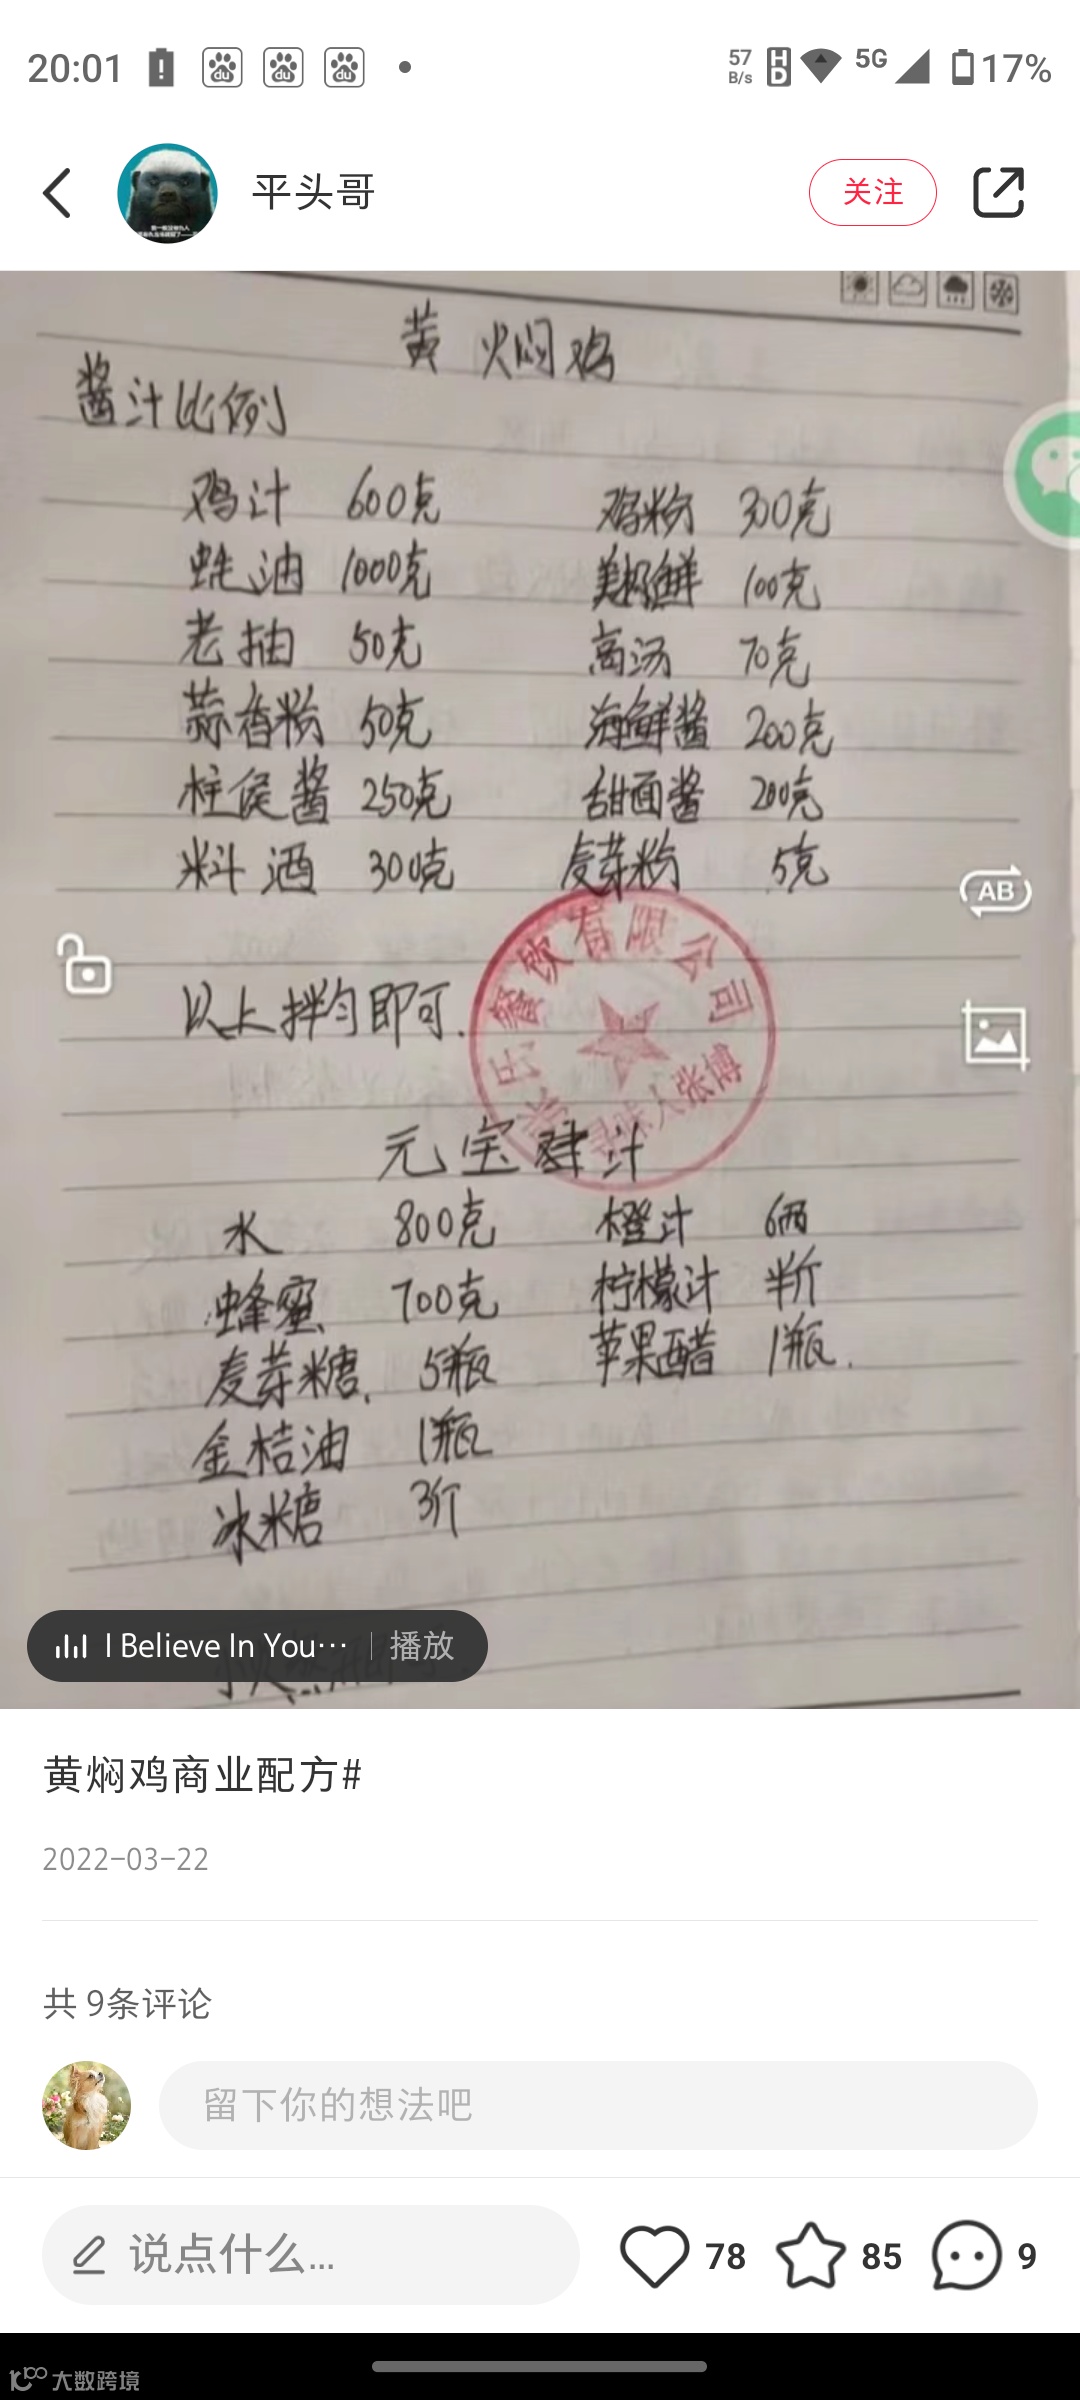 20:01
57 B/s HD 5G 17%
平头哥
关注
黄焖鸡
酱汁比例
鸡汁 600克 鸡粉 300克
蚝油 1000克 美极鲜 100克
老抽 50克 高汤 70克
蒜香粉 50克 海鲜酱 200克
柱侯酱 250克 甜面酱 200克
料酒 300克 麦芽粉 5克
AB
以上拌匀即可.
餐饮有限公司
寻味人张博
元宝 汁
水 800克 橙汁 6两
蜂蜜 700克 柠檬汁 半斤
麦芽糖. 5瓶 苹果醋 1瓶.
金桔油 1瓶
冰糖 3斤
I Believe In You… 播放
黄焖鸡商业配方#
2022-03-22
共 9条评论
留下你的想法吧
说点什么...
78
85
9
大数跨境